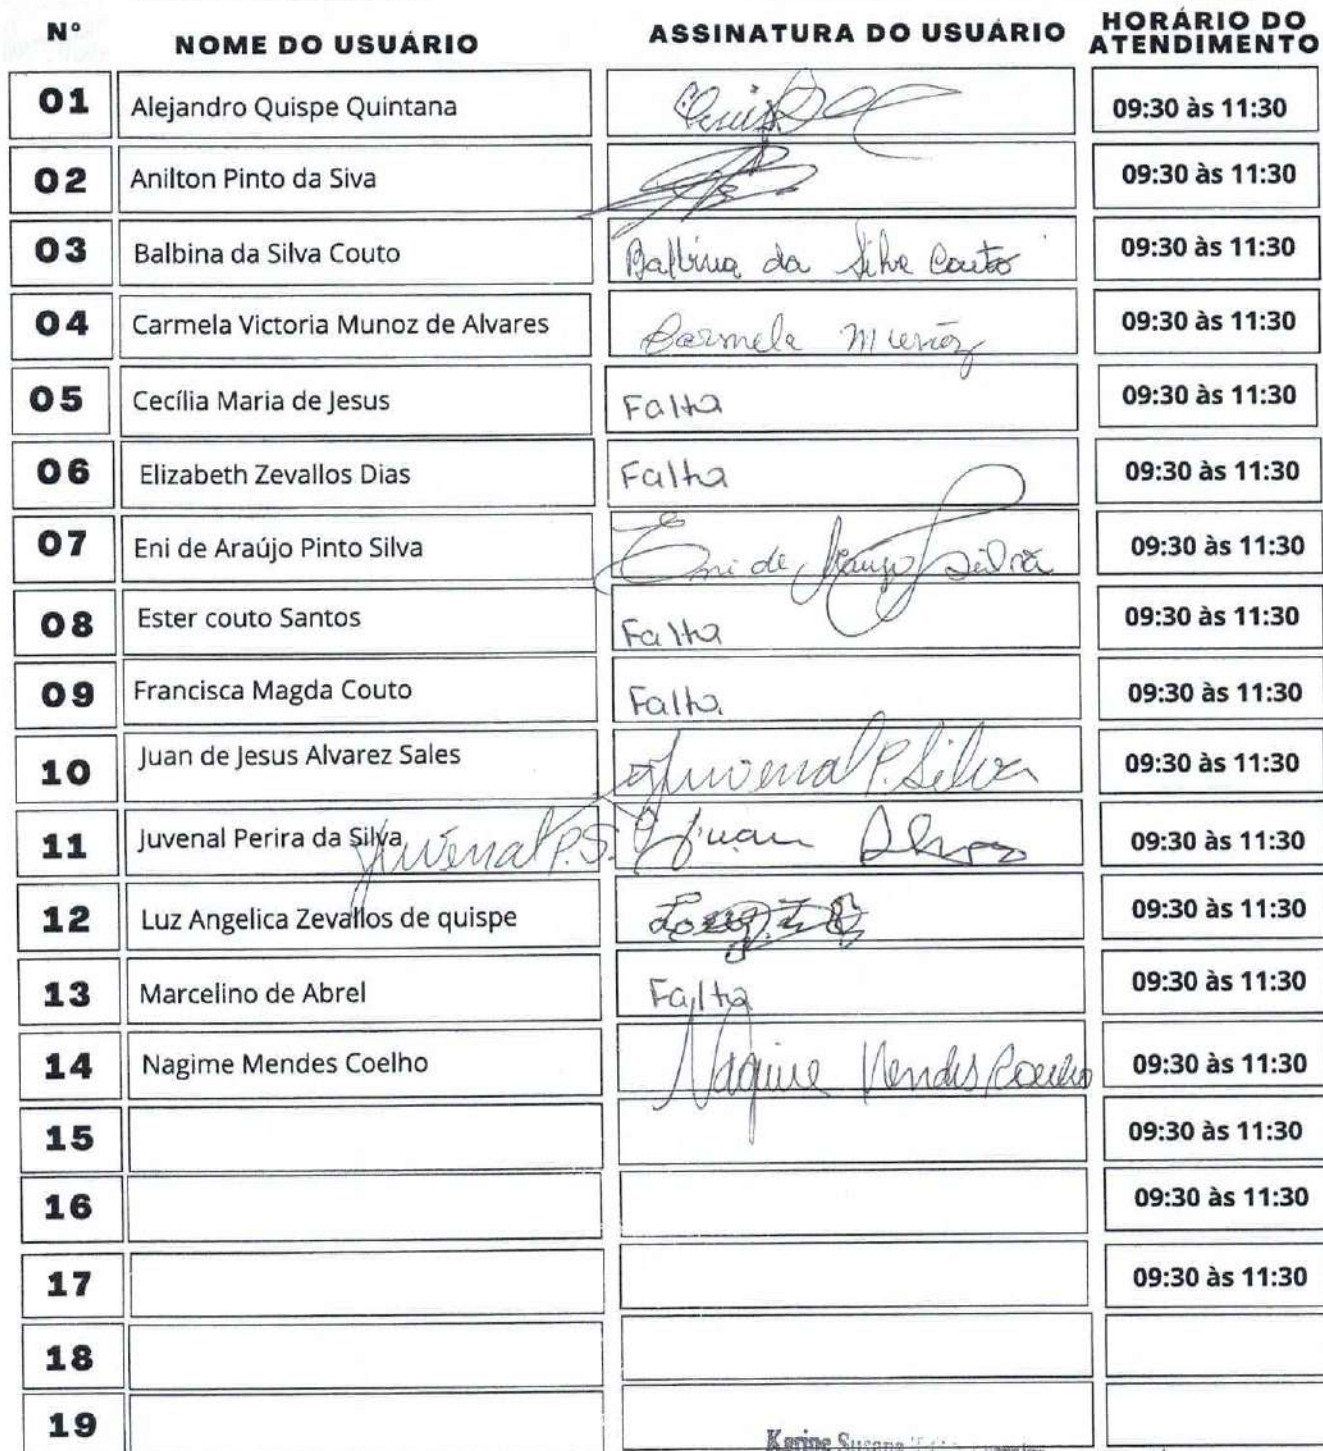 Nº NOME DO USUÁRIO ASSINATURA DO USUÁRIO HORÁRIO DO ATENDIMENTO
01 Alejandro Quispe Quintana 09:30 às 11:30
02 Anilton Pinto da Siva 09:30 às 11:30
03 Balbina da Silva Couto Balbina da Silva Couto 09:30 às 11:30
04 Carmela Victoria Munoz de Alvares Carmela Munõz 09:30 às 11:30
05 Cecília Maria de Jesus Falta 09:30 às 11:30
06 Elizabeth Zevallos Dias Falta 09:30 às 11:30
07 Eni de Araújo Pinto Silva Eni de Araujo Silva 09:30 às 11:30
08 Ester couto Santos Falta 09:30 às 11:30
09 Francisca Magda Couto Falta 09:30 às 11:30
10 Juan de Jesus Alvarez Sales Juvenal P. Silva 09:30 às 11:30
11 Juvenal Perira da Silva Juvenal P.S. Juan 09:30 às 11:30
12 Luz Angelica Zevallos de quispe 09:30 às 11:30
13 Marcelino de Abrel Falta 09:30 às 11:30
14 Nagime Mendes Coelho Nagime Mendes Coelho 09:30 às 11:30
15 09:30 às 11:30
16 09:30 às 11:30
17 09:30 às 11:30
18
19
Karine Susana